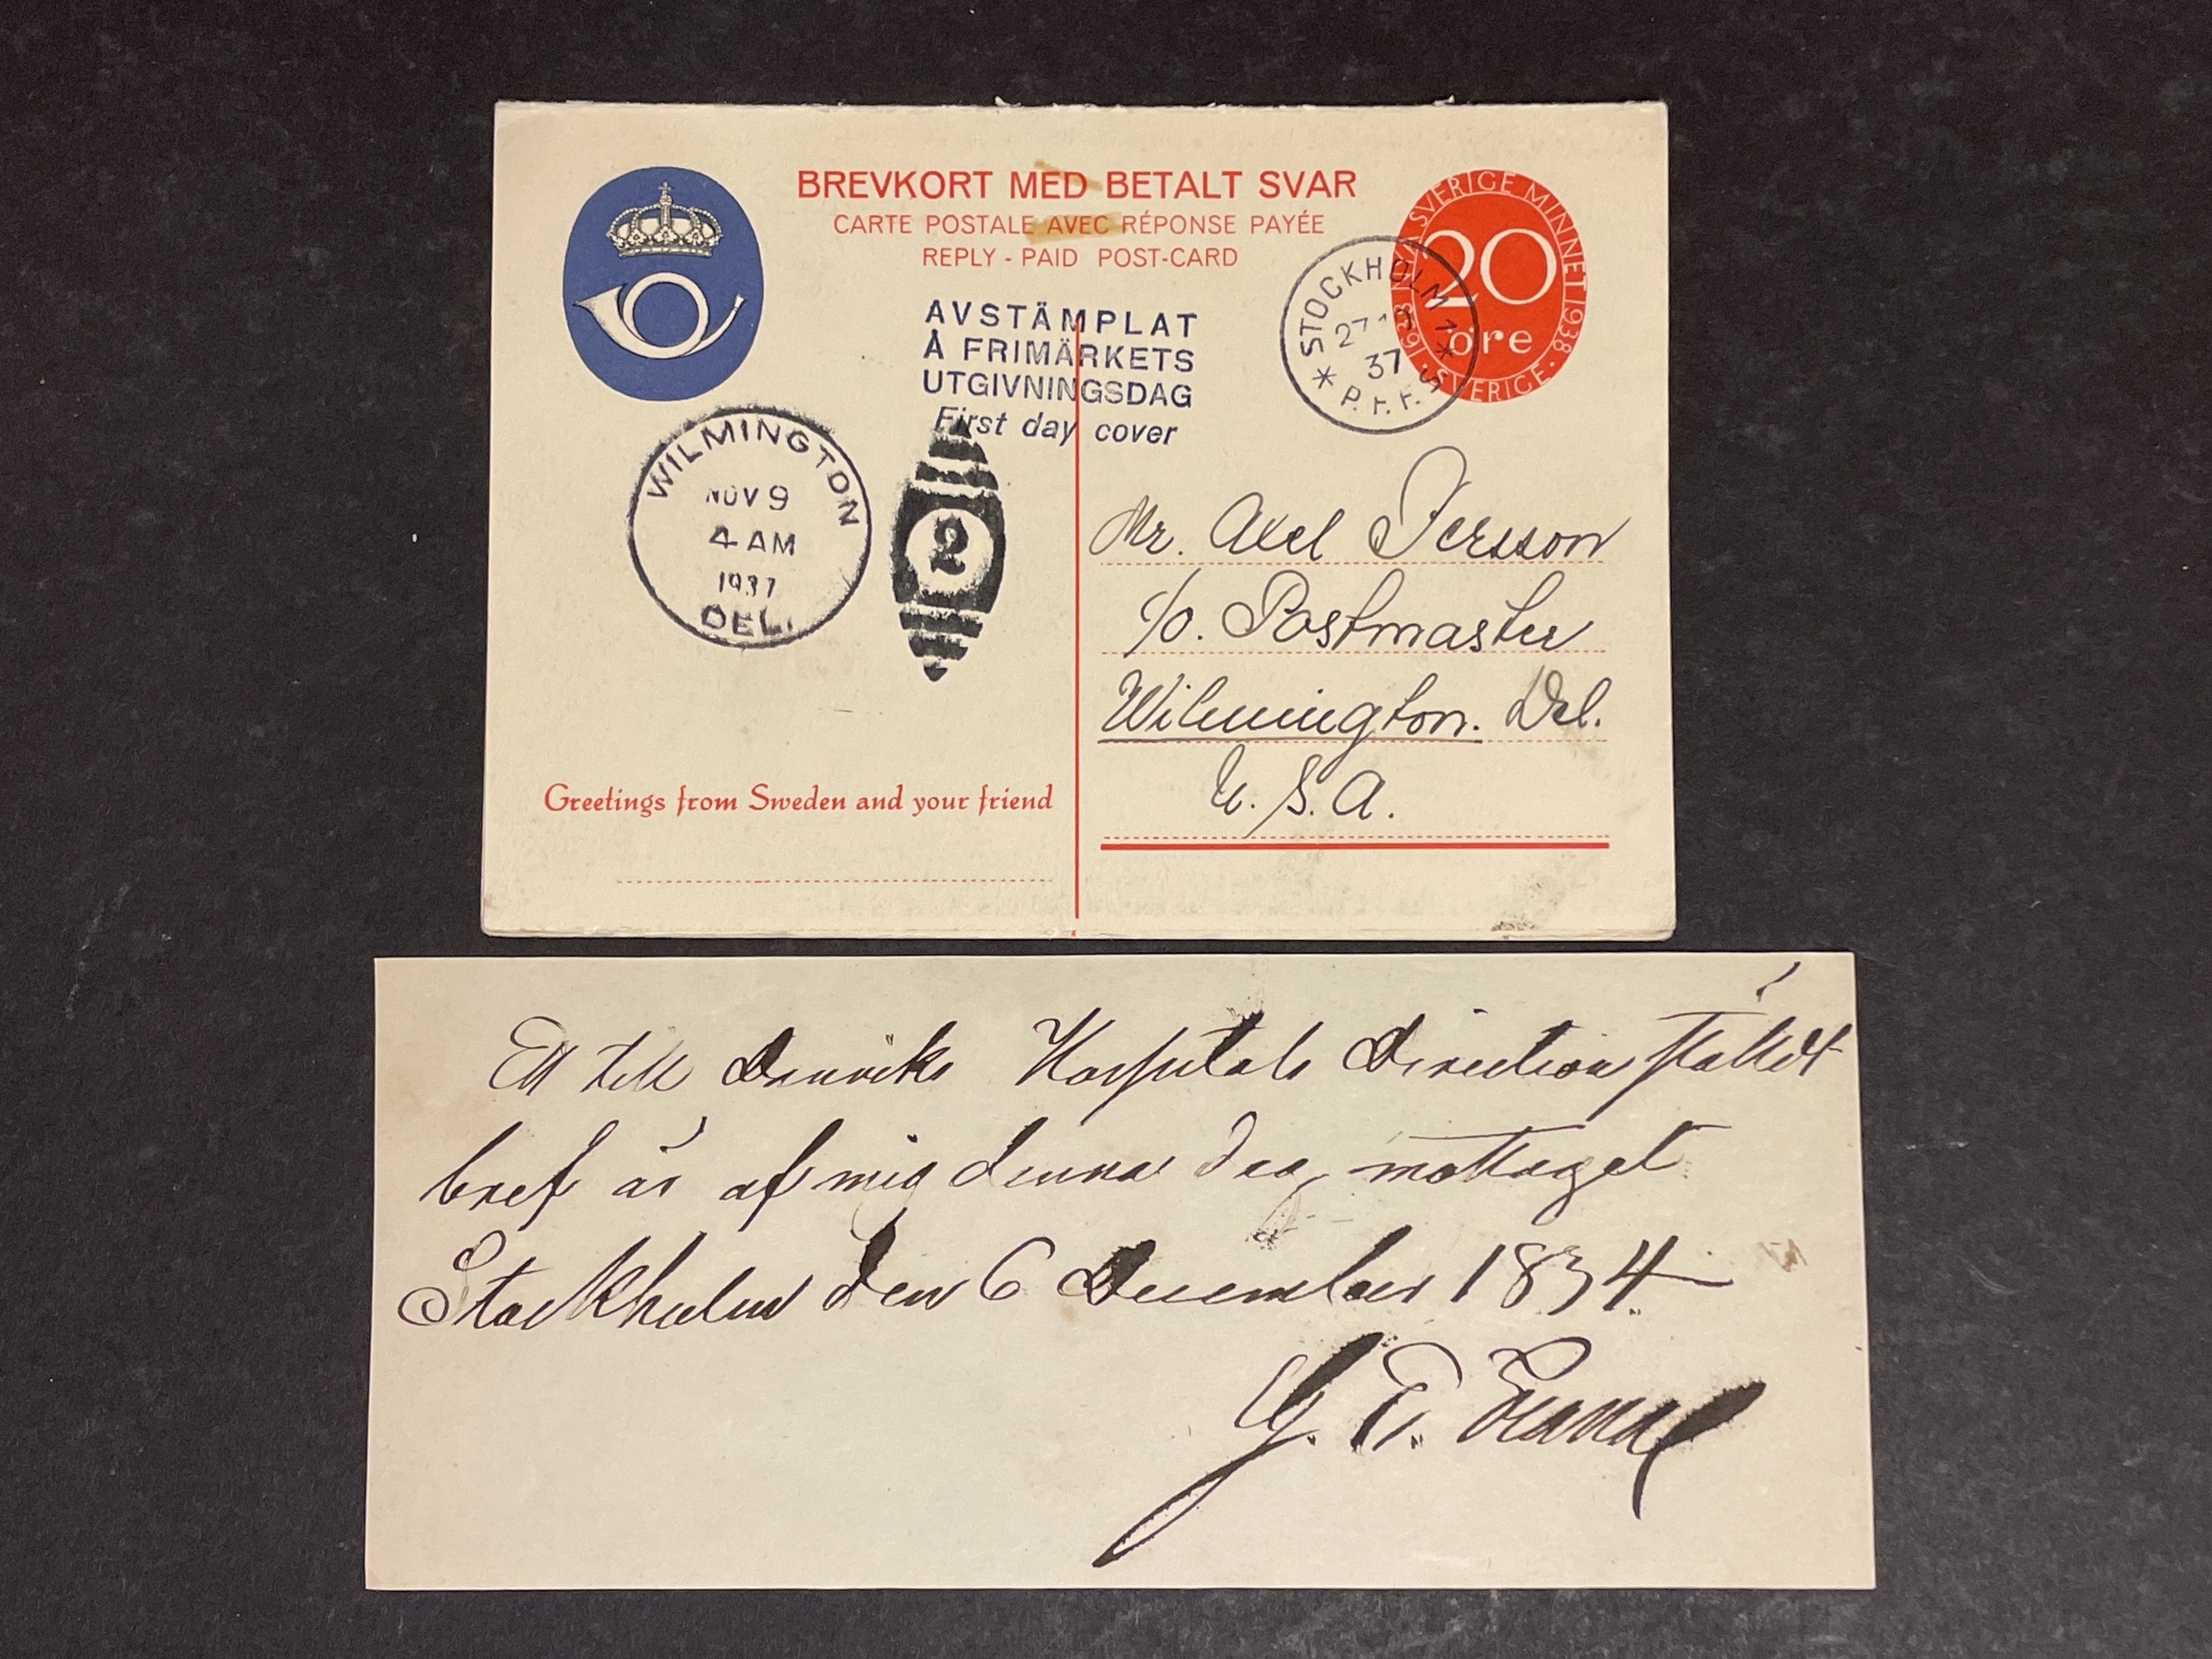 BREVKORT MED BETALT SVAR
CARTE POSTALE AVEC RÉPONSE PAYÉE
REPLY - PAID POST-CARD
NYA SVERIGE MINNET 1938 · SVERIGE · 1638
20
öre
STOCKHOLM 1
37
AVSTÄMPLAT
Å FRIMÄRKETS
UTGIVNINGSDAG
First day cover
WILMINGTON
NOV 9
4 AM
1937
DEL.
2
Mr. Axel Persson
c/o. Postmaster
Wilmington. Del.
U. S. A.
Greetings from Sweden and your friend
Ett till Danviks Hospitals Direction ställdt
bref är af mig denna dag mottaget
Stockholm den 6 December 1834
G. E.